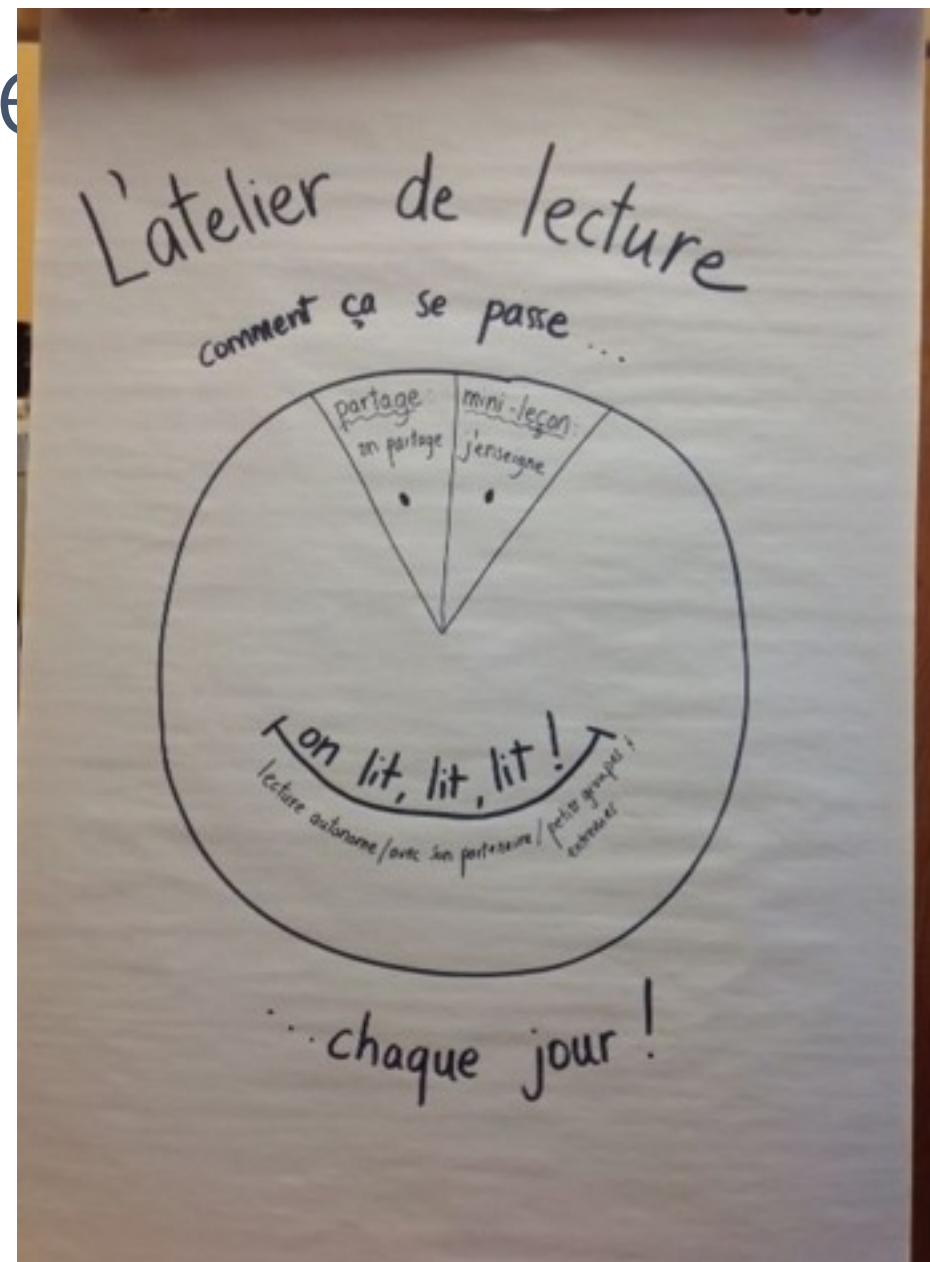 L'atelier de lecture
comment ça se passe...
partage:
on partage
mini-leçon:
j'enseigne
on lit, lit, lit !
lecture autonome/avec son partenaire/petits groupes
entrevues
...chaque jour !